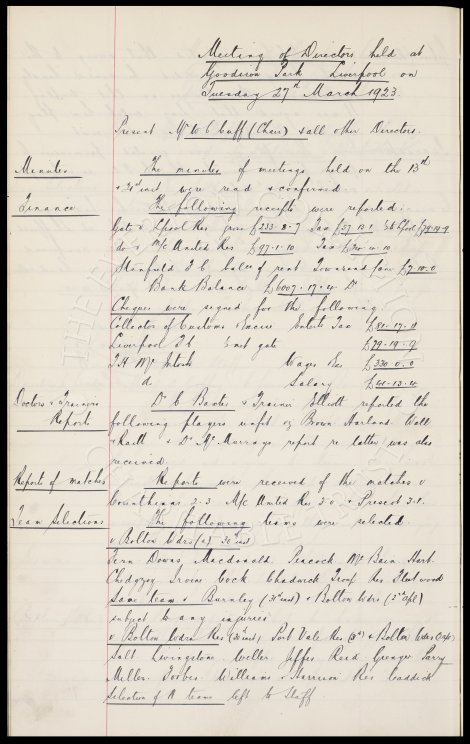 Meeting of Directors held at
Goodison Park Liverpool on
Tuesday 27th March 1923
Present Mr W C Cuff (Chair) & all other Directors.
Minutes The minutes of meetings held on the 13th
& 21st inst were read & confirmed
Finance The following receipts were reported:
Gate v L'pool Res gross £233-8-7 Tax £57-13-1 L'pool £79-19-9
do v M/c United Res £97-1-10 Tax
F C balce of rent £7-10-0
Bank Balance £6007-17-4 Dr
Cheques were signed for the following
Collector of Customs & Excise Entts Tax £81-17-11
Liverpool F C Snet gate £79-19-9
T H McIntosh Wages &c £330-0-0
do Salary £41-13-4
Doctors & Trainers Dr C Baxter & Trainer Elliott reported the
Report following players unfit eg Brown Harland Wall
& Raitt & Dr McMurrays report re latter was also
received
Reports of matches Reports were received of the matches v
Corinthians 2-3 M/c United Res 3-0 & Prescot 3-1.
Team Selections The following teams were selected
v Bolton Wdrs (a) 30th inst
Fern Downs Macdonald Peacock McBain Hart
Chedgzoy Irvine Cock Chadwick Troup Res Fleetwood
Same team v Burnley (31st inst) & Bolton Wdrs (2nd Apl)
subject to any injuries
v Bolton Wdrs Res (31st inst), Port Vale Res & Bolton Wdrs
Salt Livingstone Weller Jeffs Reid Grenyer Parry
Miller Forbes Williams & Harrison Res Caddick
Selection of A team left to Staff